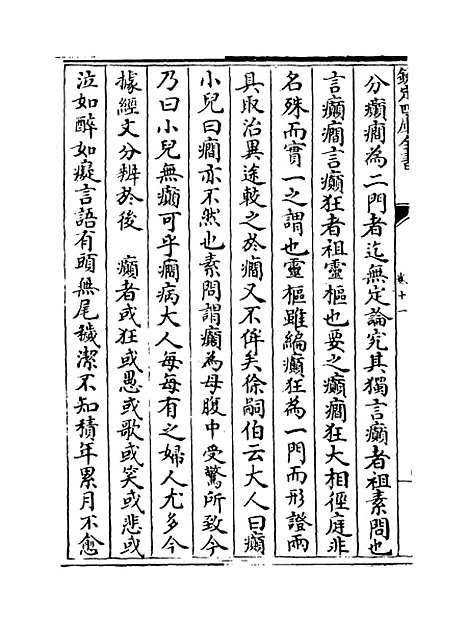 欽定四庫全書
卷十一
分癲癇為二門者迄無定論究其獨言癲者祖素問也
言癲癇言癲狂者祖靈樞也要之癲癇狂大相徑庭非
名殊而實一之謂也靈樞雖編癲狂為一門而形證兩
具取治異途較之於癇又不侔矣徐嗣伯云大人曰癲
小兒曰癇亦不然也素問謂癲為母腹中受驚所致今
乃曰小兒無癲可乎癇病大人每每有之婦人尤多今
據經文分辨於後　癲者或狂或愚或歌或笑或悲或
泣如醉如癡言語有頭無尾穢潔不知積年累月不愈